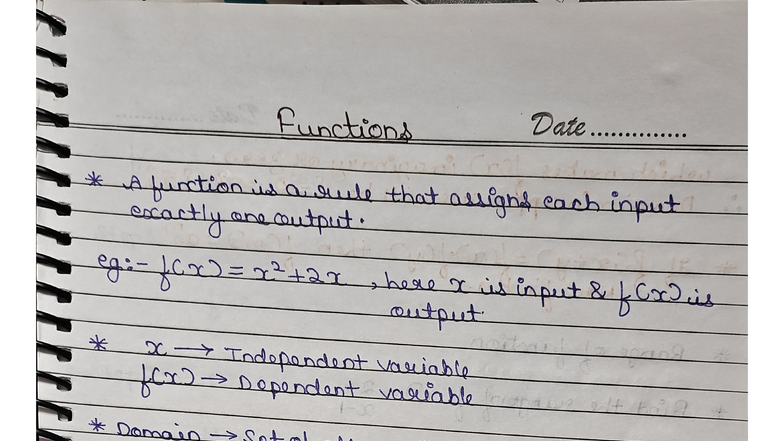 Functions Date..............
* A function is a rule that assigns each input
exactly one output.
eg:- f(x) = x²+2x , here x is input & f(x) is
output.
* x → Independent variable
f(x) → Dependent variable
* Domain → Set of